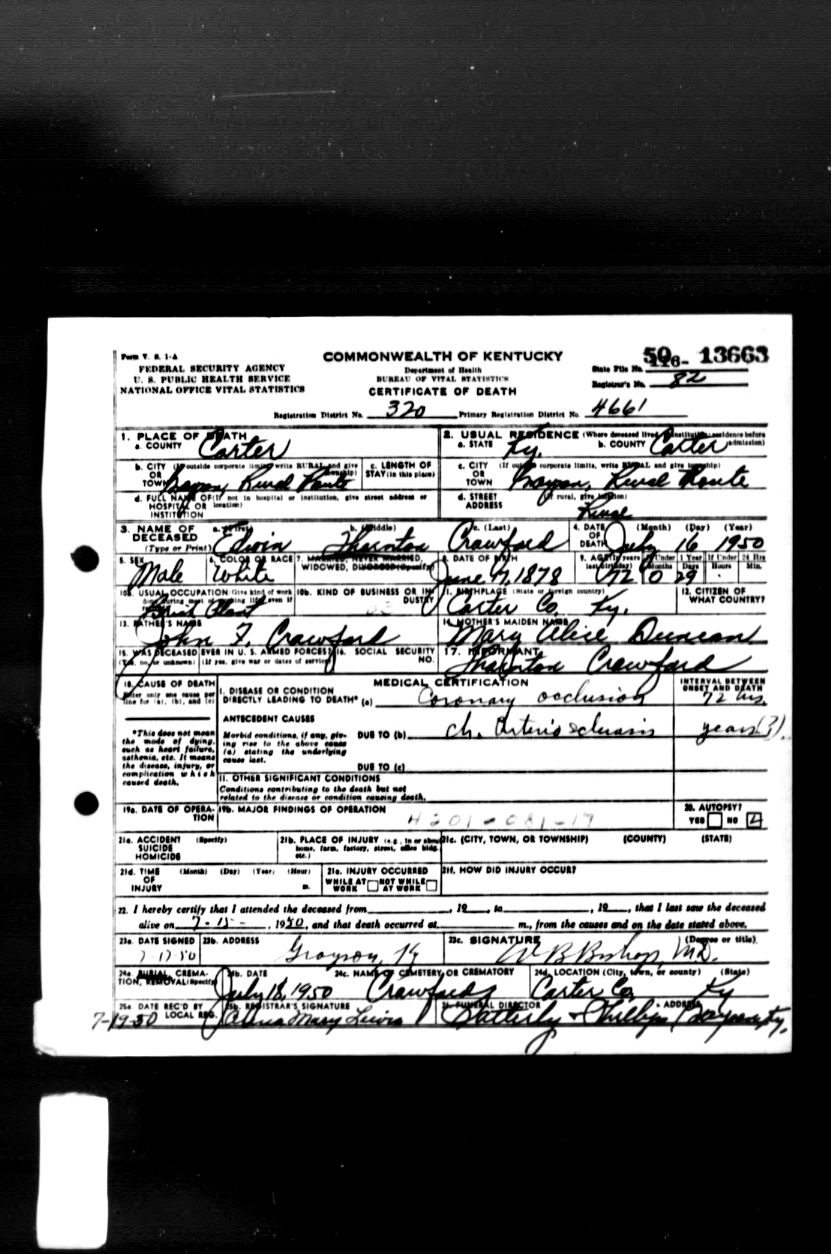 Form V. S. 1-A
COMMONWEALTH OF KENTUCKY
FEDERAL SECURITY AGENCY
U. S. PUBLIC HEALTH SERVICE
NATIONAL OFFICE VITAL STATISTICS
Department of Health
BUREAU OF VITAL STATISTICS
CERTIFICATE OF DEATH
State File No. 116- 50 13663
Registrar's No. 82
Registration District No. 320 Primary Registration District No. 4661
1. PLACE OF DEATH
a. COUNTY Carter
2. USUAL RESIDENCE (Where deceased lived. If institution: residence before admission)
a. STATE Ky. b. COUNTY Carter
b. CITY (If outside corporate limits, write RURAL and give township) OR TOWN Grayson Rural Route
c. LENGTH OF STAY (in this place)
c. CITY (If outside corporate limits, write RURAL and give township) OR TOWN Grayson, Rural Route
d. FULL NAME OF (If not in hospital or institution, give street address or location) HOSPITAL OR INSTITUTION
d. STREET ADDRESS (If rural, give location) Rural
3. NAME OF DECEASED (Type or Print) a. (First) Edwin b. (Middle) Thornton c. (Last) Crawford
4. DATE OF DEATH (Month) (Day) (Year) July 16 1950
5. SEX Male
6. COLOR OR RACE White
7. MARRIED, NEVER MARRIED, WIDOWED, DIVORCED (Specify)
8. DATE OF BIRTH June 17, 1878
9. AGE (In years last birthday) 72 If Under 1 Year Months 0 Days 29 If Under 24 Hrs Hours Min.
10a. USUAL OCCUPATION (Give kind of work done during most of working life, even if retired) Brick Plant
10b. KIND OF BUSINESS OR INDUSTRY
11. BIRTHPLACE (State or foreign country) Carter Co, Ky.
12. CITIZEN OF WHAT COUNTRY?
13. FATHER'S NAME John F. Crawford
14. MOTHER'S MAIDEN NAME Mary Alice Duncan
15. WAS DECEASED EVER IN U. S. ARMED FORCES? (Yes, no, or unknown) (If yes, give war or dates of service)
16. SOCIAL SECURITY NO.
17. INFORMANT Thornton Crawford
18. CAUSE OF DEATH
Enter only one cause per line for (a), (b), and (c)
MEDICAL CERTIFICATION
INTERVAL BETWEEN ONSET AND DEATH
I. DISEASE OR CONDITION DIRECTLY LEADING TO DEATH* (a) Coronary occlusion 72 hrs.
*This does not mean the mode of dying, such as heart failure, asthenia, etc. It means the disease, injury, or complication which caused death.
ANTECEDENT CAUSES
Morbid conditions, if any, giving rise to the above cause (a) stating the underlying cause last.
DUE TO (b) Ch. Arteriosclerosis years (?)
DUE TO (c)
II. OTHER SIGNIFICANT CONDITIONS
Conditions contributing to the death but not related to the disease or condition causing death.
19a. DATE OF OPERATION
19b. MAJOR FINDINGS OF OPERATION
4201-081-17
20. AUTOPSY?
YES NO
21a. ACCIDENT SUICIDE HOMICIDE (Specify)
21b. PLACE OF INJURY (e.g., in or about home, farm, factory, street, office bldg. etc.)
21c. (CITY, TOWN, OR TOWNSHIP) (COUNTY) (STATE)
21d. TIME OF INJURY (Month) (Day) (Year) (Hour) m.
21e. INJURY OCCURRED
WHILE AT WORK NOT WHILE AT WORK
21f. HOW DID INJURY OCCUR?
22. I hereby certify that I attended the deceased from , 19 , to , 19 , that I last saw the deceased
alive on 7-15- , 1950, and that death occurred at m., from the causes and on the date stated above.
23a. DATE SIGNED 7-17-50
23b. ADDRESS Grayson, Ky
23c. SIGNATURE (Degree or title) W B Bishop, M.D.
24a. BURIAL, CREMATION, REMOVAL (Specify)
24b. DATE July 18, 1950
24c. NAME OF CEMETERY OR CREMATORY Crawfords
24d. LOCATION (City, town, or county) (State) Carter Co, Ky
25a. DATE REC'D BY LOCAL REG. 7-19-50
25b. REGISTRAR'S SIGNATURE Mary Lewis
FUNERAL DIRECTOR ADDRESS & Phillips Grayson, Ky.